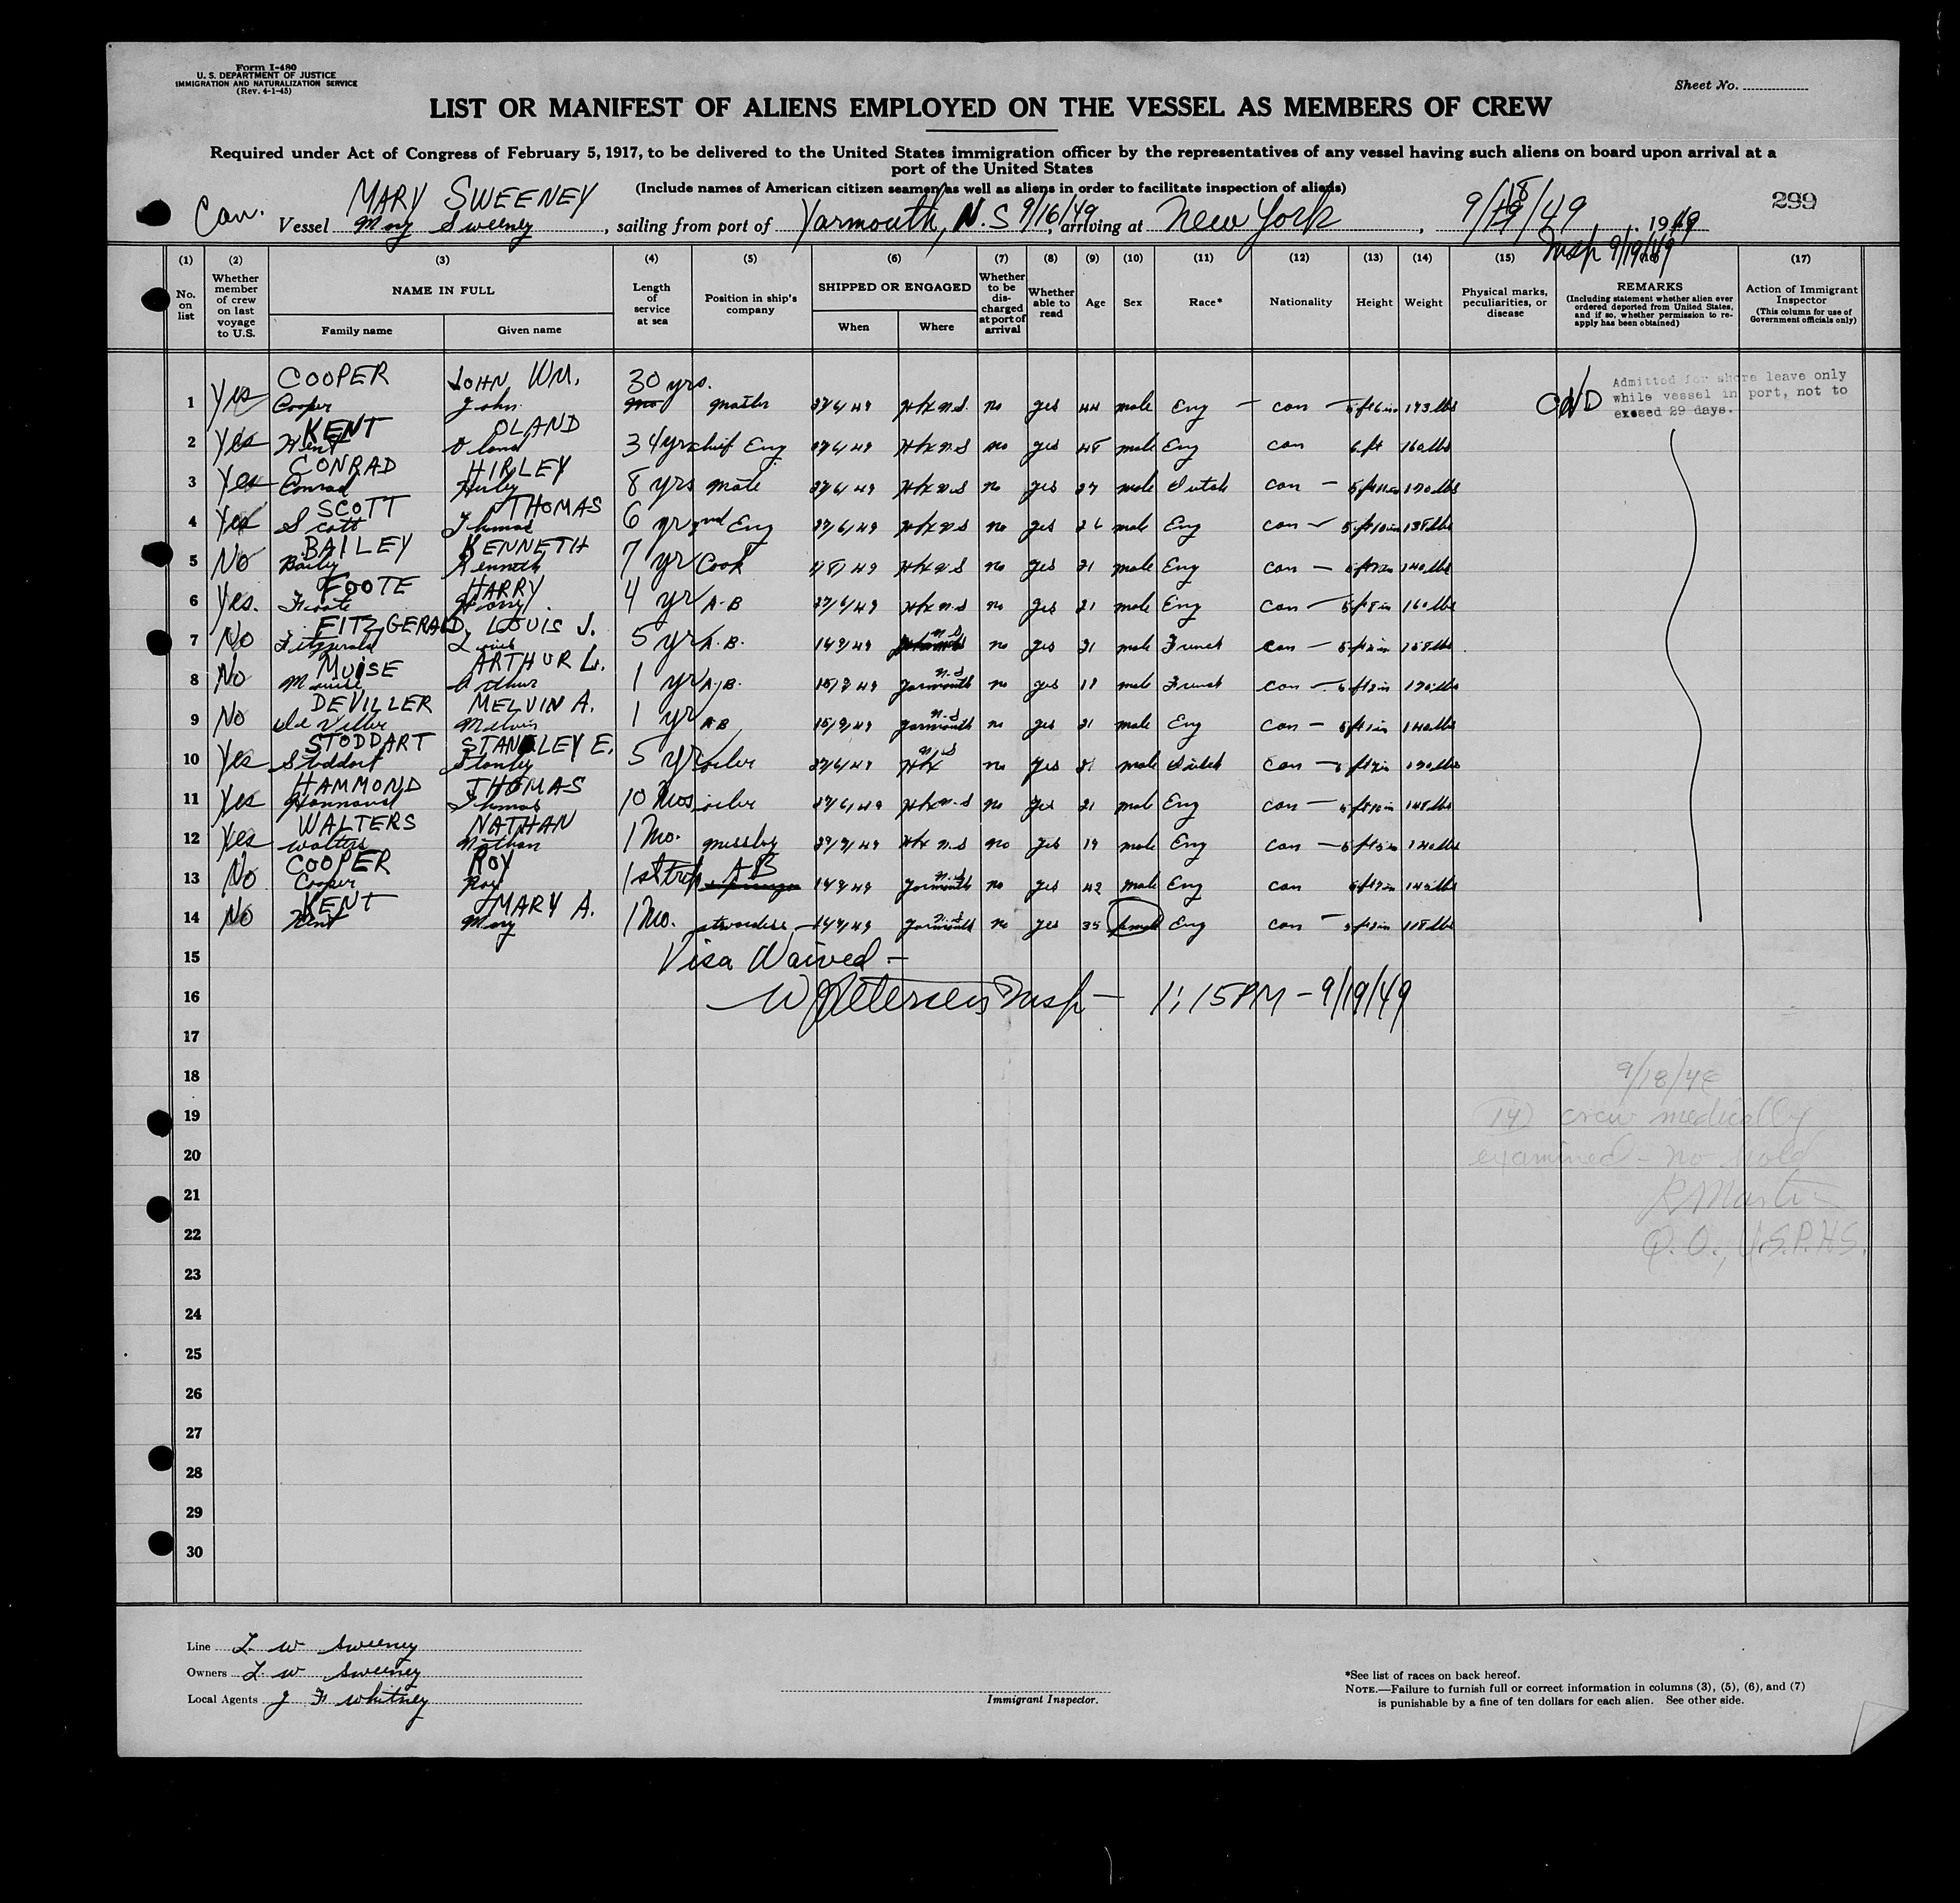 Form I-480
U. S. DEPARTMENT OF JUSTICE
IMMIGRATION AND NATURALIZATION SERVICE
(Rev. 4-1-45)
Sheet No.
LIST OR MANIFEST OF ALIENS EMPLOYED ON THE VESSEL AS MEMBERS OF CREW
Required under Act of Congress of February 5, 1917, to be delivered to the United States immigration officer by the representatives of any vessel having such aliens on board upon arrival at a
port of the United States
(Include names of American citizen seamen as well as aliens in order to facilitate inspection of aliens)
299
MARY SWEENEY
Can. Vessel Mary Sweeney, sailing from port of Yarmouth, N.S 9/16/49, arriving at New York, 9/18/49, 1949
Insp 9/19/49
(1) (2) (3) (4) (5) (6) (7) (8) (9) (10) (11) (12) (13) (14) (15) (17)
No. on list
Whether member of crew on last voyage to U.S.
NAME IN FULL
Family name
Given name
Length of service at sea
Position in ship's company
SHIPPED OR ENGAGED
When
Where
Whether to be discharged at port of arrival
Whether able to read
Age
Sex
Race*
Nationality
Height
Weight
Physical marks, peculiarities, or disease
REMARKS
(Including statement whether alien ever ordered deported from United States, and if so, whether permission to re-apply has been obtained)
Action of Immigrant Inspector
(This column for use of Government officials only)
COOPER JOHN WM. 30 yrs.
1 Yes Cooper John master 27/6/49 Hfx n.s. no yes 44 male Eng can 5 ft 6 in 173 lbs
Admitted for shore leave only
while vessel in port, not to
exceed 29 days.
KENT OLAND
2 Yes Kent Oland 34 yrs chief Eng 27/6/49 Hfx n.s no yes 48 male Eng can 6 ft 160 lbs
CONRAD HIRLEY
3 Yes Conrad Hirley 8 yrs mate 27/6/49 Hfx n.s no yes 27 male Dutch can 5 ft 11 in 170 lbs
SCOTT THOMAS
4 Yes Scott Thomas 6 yr 2nd Eng 27/6/49 Hfx n.s no yes 26 male Eng can 5 ft 10 in 138 lbs
BAILEY KENNETH
5 No Bailey Kenneth 7 yr Cook Hfx n.s no yes 21 male Eng can 140 lbs
FOOTE HARRY
6 Yes. Foote Harry 4 yr A-B 27/6/49 Hfx n.s no yes 21 male Eng can 5 ft 8 in 160 lbs
FITZGERALD, LOUIS J.
7 No Fitzgerald Louis 5 yr A.B. 14/9/49 n.s no yes 21 male French can 158 lbs
MUISE ARTHUR L.
8 No Muise Arthur 1 yr A.B. 15/9/49 Yarmouth n.s no yes 18 male French can 170 lbs
DEVILLER MELVIN A.
9 No De Viller Melvin 1 yr AB 15/9/49 Yarmouth n.s no yes 21 male Eng can 140 lbs
STODDART STANLEY E.
10 Yes Stoddart Stanley 5 yr oiler 27/6/49 Hfx n.s no yes 21 male Dutch can 170 lbs
HAMMOND THOMAS
11 Yes Hammond Thomas 10 Mos oiler 27/6/49 Hfx n.s no yes 21 male Eng can 5 ft 10 in 148 lbs
WALTERS NATHAN
12 Yes Walters Nathan 1 Mo. messboy Hfx n.s no yes 19 male Eng can 120 lbs
COOPER ROY
13 No Cooper Roy 1st trip AB 14/9/49 Yarmouth n.s no yes 42 male Eng can 145 lbs
KENT MARY A.
14 No Kent Mary 1 Mo. stwardess 14/9/49 Yarmouth n.s no yes 35 female Eng can 118 lbs
15 Visa Waived -
16 W J Petersen Insp - 1:15 PM - 9/19/49
17
18 9/18/49
19 (14) crew medically
20 examined - no hold
21 R Martin
22 Q. O., U.S.P.H.S.
23
24
25
26
27
28
29
30
Line L. W Sweeney
Owners L. W Sweeney
Local Agents J F Whitney
Immigrant Inspector.
*See list of races on back hereof.
NOTE.—Failure to furnish full or correct information in columns (3), (5), (6), and (7)
is punishable by a fine of ten dollars for each alien. See other side.